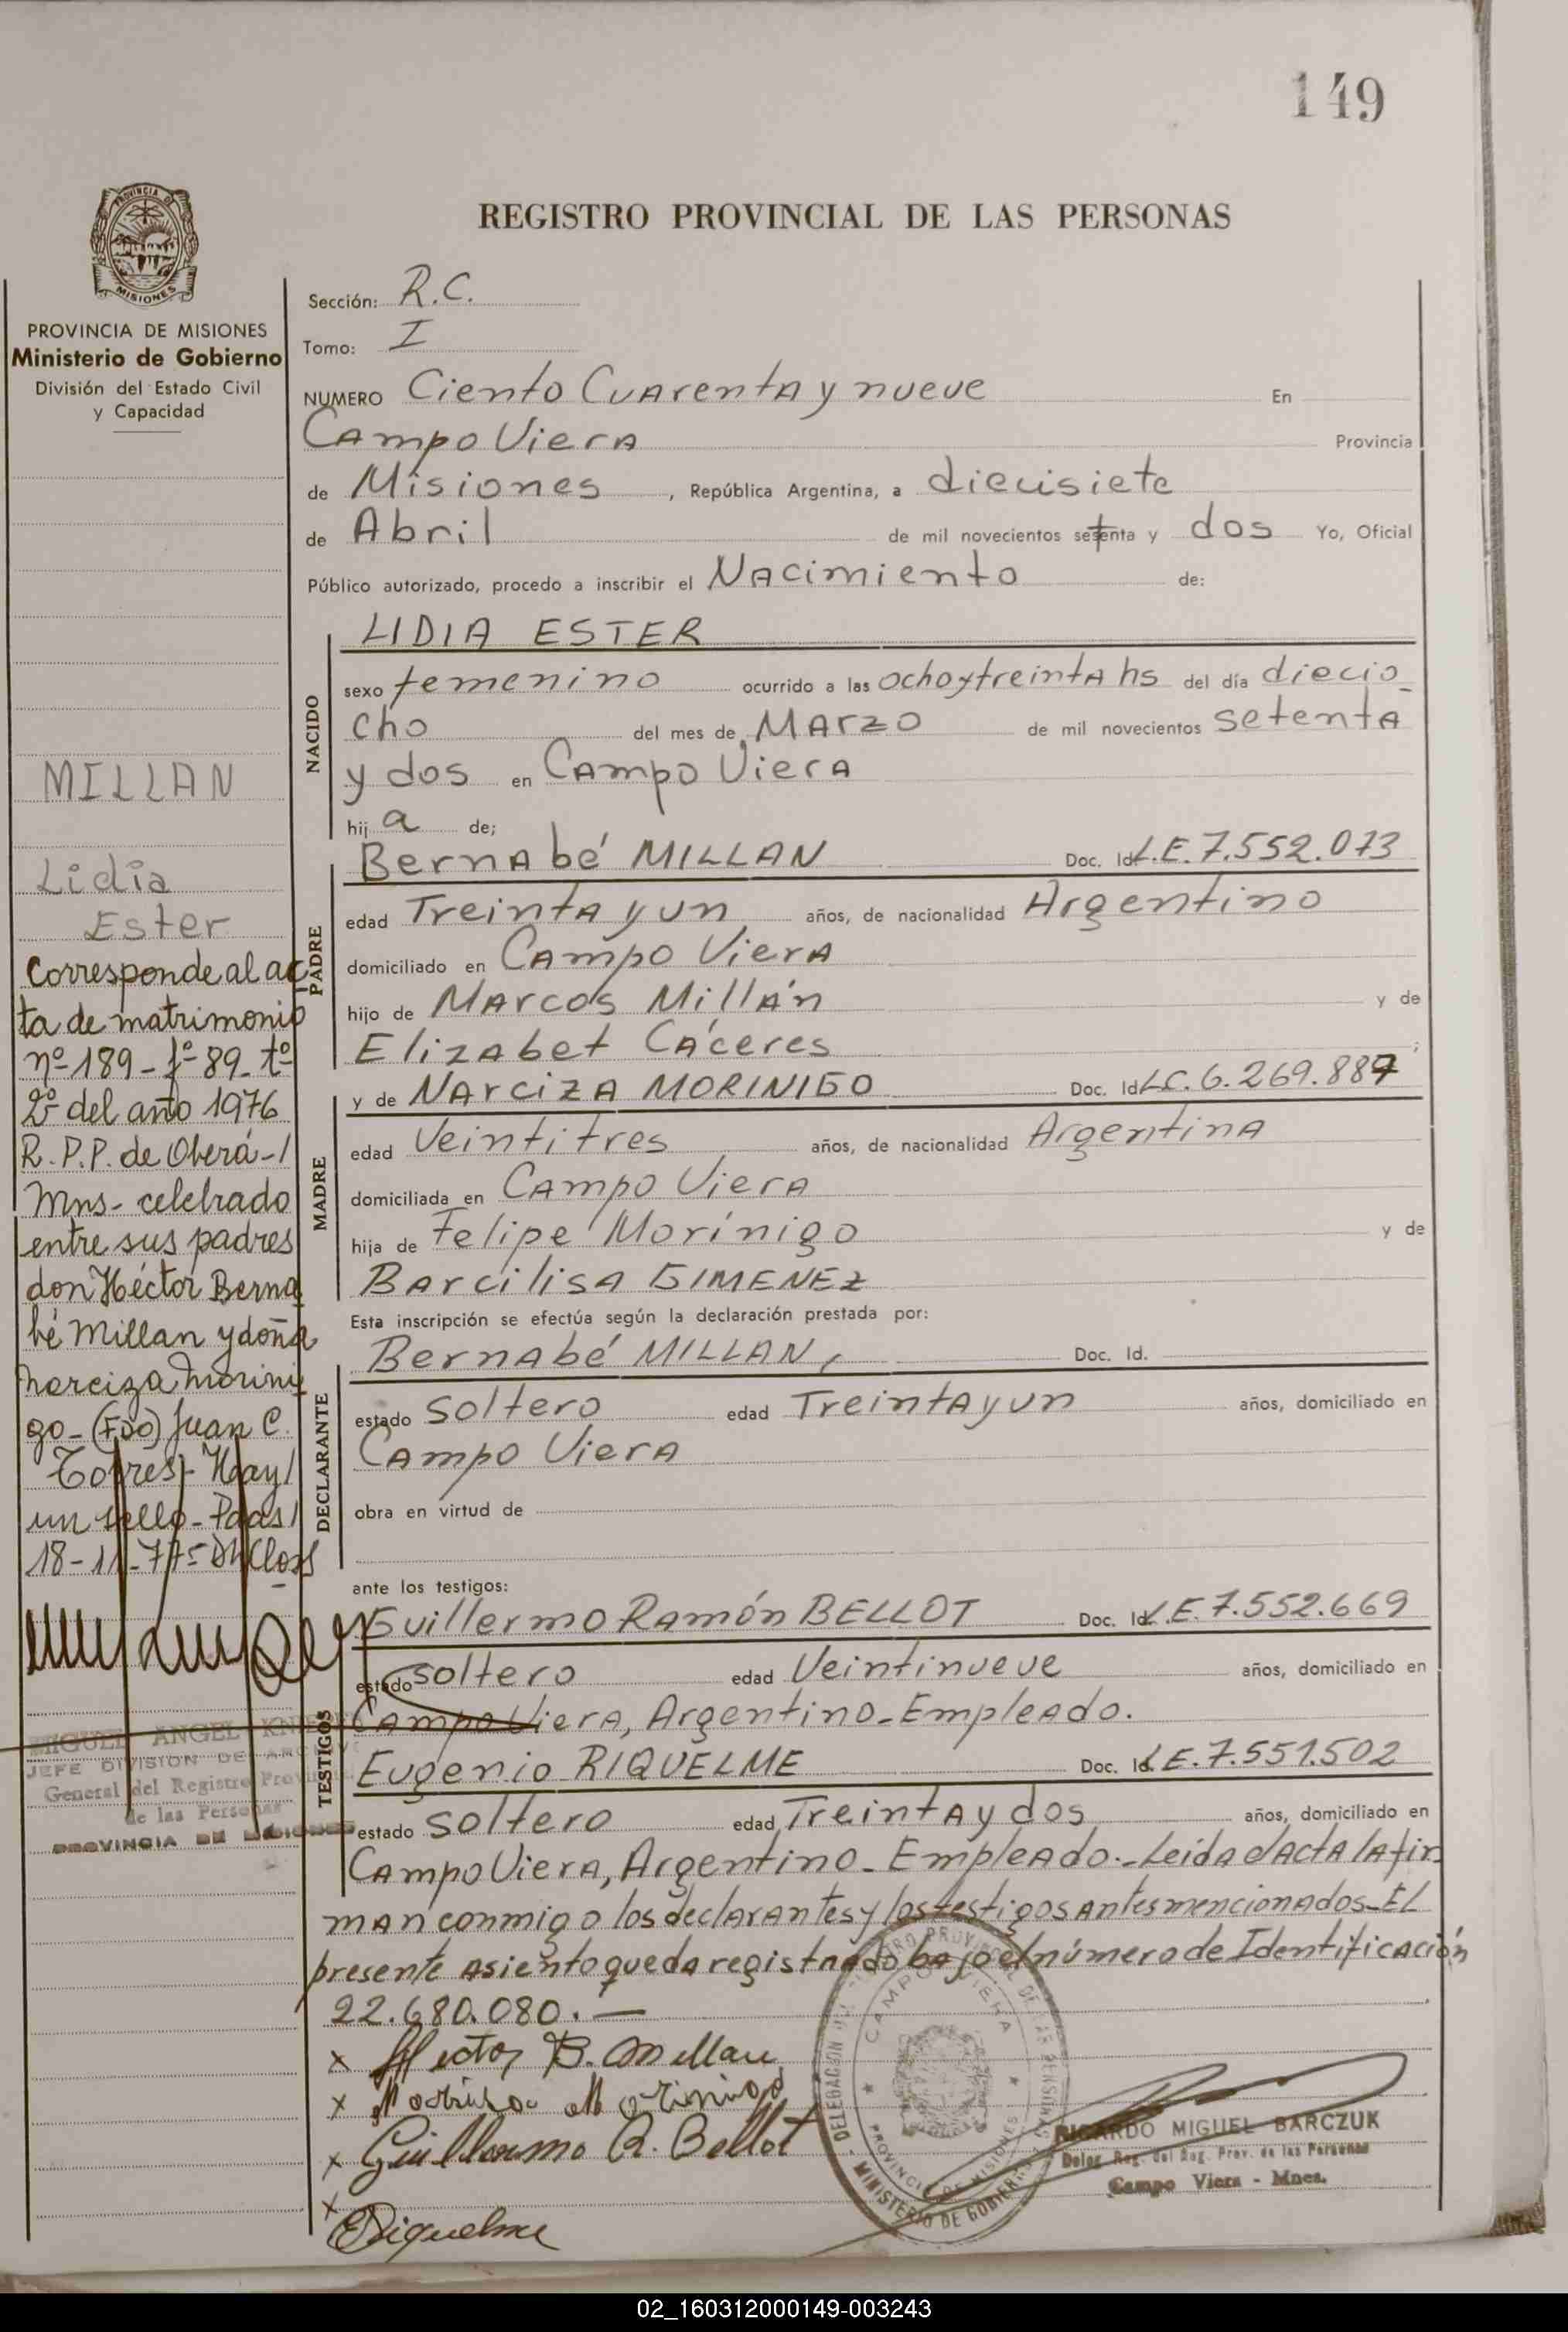 149
REGISTRO PROVINCIAL DE LAS PERSONAS
PROVINCIA DE MISIONES
PROVINCIA DE MISIONES
Ministerio de Gobierno
División del Estado Civil
y Capacidad
MILLAN
Lidia
Ester
Corresponde al ac
ta de matrimonio
nº 189 - fº 89 - tº
2º del año 1976
R. P. P. de Oberá -/
Mns - celebrado
entre sus padres
don Héctor Berna
bé Millan y doña
Narciza Morini
go - (FDO) Juan C.
Torres - Hay/
un sello - Pdas/
18-11-77-
MIGUEL ANGEL
JEFE DIVISION DE
General del Registro
de las Personas
PROVINCIA DE MISIONES
Sección: R.C.
Tomo: I
NUMERO Ciento Cuarenta y nueve En
Campo Viera Provincia
de Misiones , República Argentina, a diecisiete
de Abril de mil novecientos setenta y dos Yo, Oficial
Público autorizado, procedo a inscribir el Nacimiento de:
NACIDO
LIDIA ESTER
sexo femenino ocurrido a las ocho y treinta hs del día diecio_
cho del mes de Marzo de mil novecientos setenta
y dos en Campo Viera
hij a de;
PADRE
Bernabé MILLAN Doc. Id. L.E. 7.552.073
edad Treinta y un años, de nacionalidad Argentino
domiciliado en Campo Viera
hijo de Marcos Millán y de
Elizabet Cáceres ;
MADRE
y de Narciza MORINIGO Doc. Id. L.C. 6.269.887
edad Veintitres años, de nacionalidad Argentina
domiciliada en Campo Viera
hija de Felipe Morínigo y de
Barcilisa GIMENEZ
Esta inscripción se efectúa según la declaración prestada por:
DECLARANTE
Bernabé MILLAN, Doc. Id.
estado soltero edad Treinta y un años, domiciliado en
Campo Viera
obra en virtud de
ante los testigos:
TESTIGOS
Guillermo Ramón BELLOT Doc. Id. L.E. 7.552.669
estado soltero edad Veintinueve años, domiciliado en
Campo Viera, Argentino_Empleado.
Eugenio RIQUELME Doc. Id. L.E. 7.551.502
estado soltero edad Treinta y dos años, domiciliado en
Campo Viera, Argentino_Empleado._Leída el Acta la fir_
man conmigo los declarantes y los testigos antes mencionados_El
presente asiento queda registrado bajo el número de Identificación
22.680.080.—
x Hector B. Millan
x
x Guillermo R. Bellot
x
ERiquelme
CAMPO VIERA
PROVINCIA DE MISIONES
MINISTERIO DE GOBIERNO
RICARDO MIGUEL BARCZUK
Deleg. Reg. del Reg. Prov. de las Personas
Campo Viera - Mnes.
02_160312000149-003243